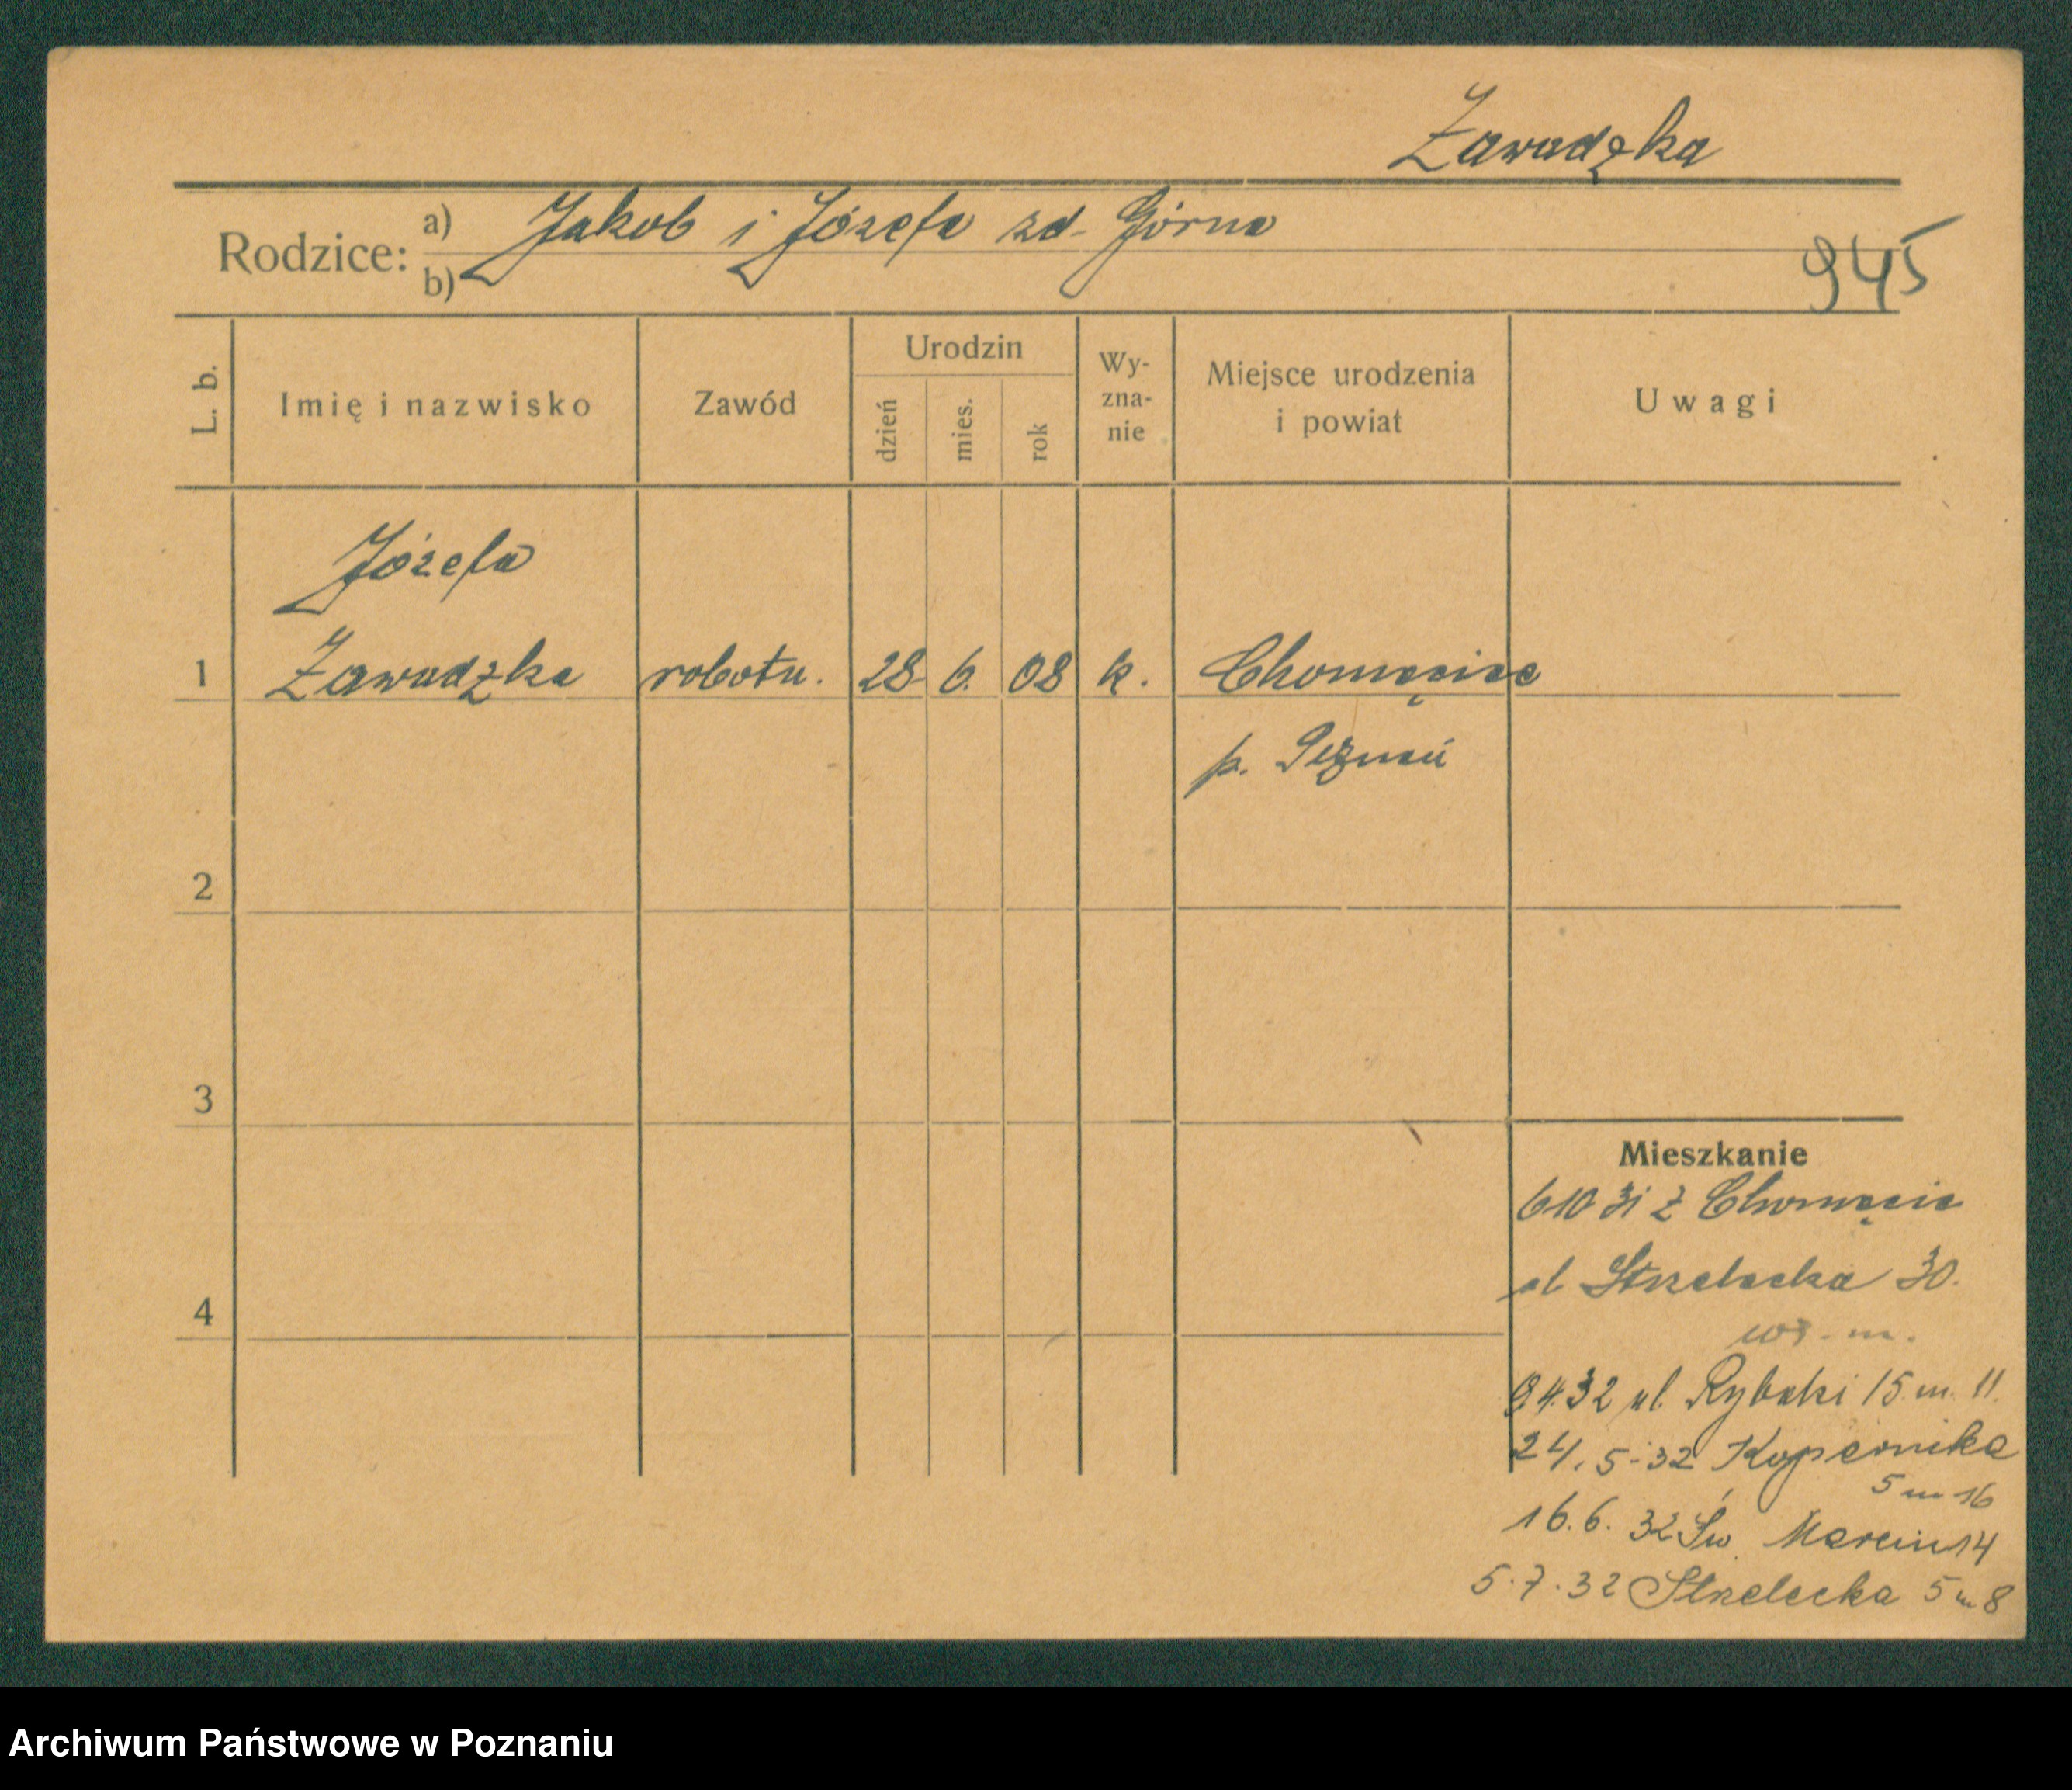 Zawadzka
Rodzice: a) Jakob i Józefa zd. Górna
b)
945
L. b.
Imię i nazwisko
Zawód
Urodzin
dzień
mies.
rok
Wy-
zna-
nie
Miejsce urodzenia
i powiat
Uwagi
Józefa
1 Zawadzka robotn. 28. 6. 08 k. Chomęcice
p. Poznań
2
3
4
Mieszkanie
6 10 31 z Chomęcic
ul. Strzelecka 30.
9.4.32 ul. Rybaki 15 m. 11.
24.5.32 Kopernika
5 m 16
16.6.32 Św. Marcin 14
5.7.32 Strzelecka 5 m 8
Archiwum Państwowe w Poznaniu